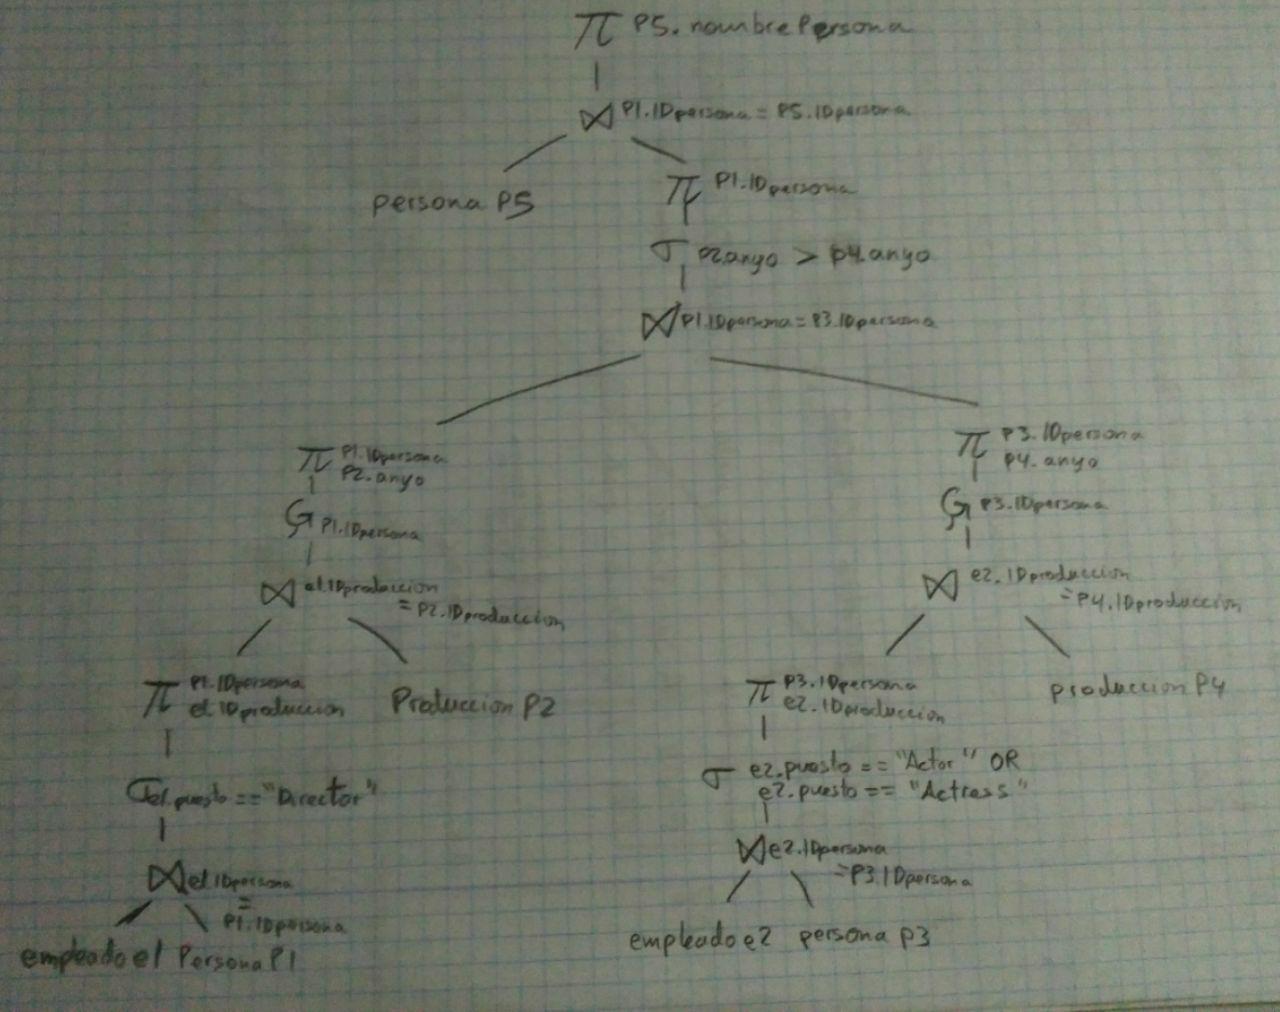 π P5.nombrePersona
⋈ P1.IDpersona = P5.IDpersona
persona P5
π P1.IDpersona
σ p2.anyo > p4.anyo
⋈ P1.IDpersona = P3.IDpersona
π P1.IDpersona
P2.anyo
G P1.IDpersona
⋈ e1.IDproduccion
= P2.IDproduccion
π P1.IDpersona
e1.IDproduccion
Produccion P2
σ e1.puesto == "Director"
⋈ e1.IDpersona
=
P1.IDpersona
empleado e1 Persona P1
π P3.IDpersona
P4.anyo
G P3.IDpersona
⋈ e2.IDproduccion
= P4.IDproduccion
π P3.IDpersona
e2.IDproduccion
produccion P4
σ e2.puesto == "Actor" OR
e2.puesto == "Actress"
⋈ e2.IDpersona
= P3.IDpersona
empleado e2 persona P3